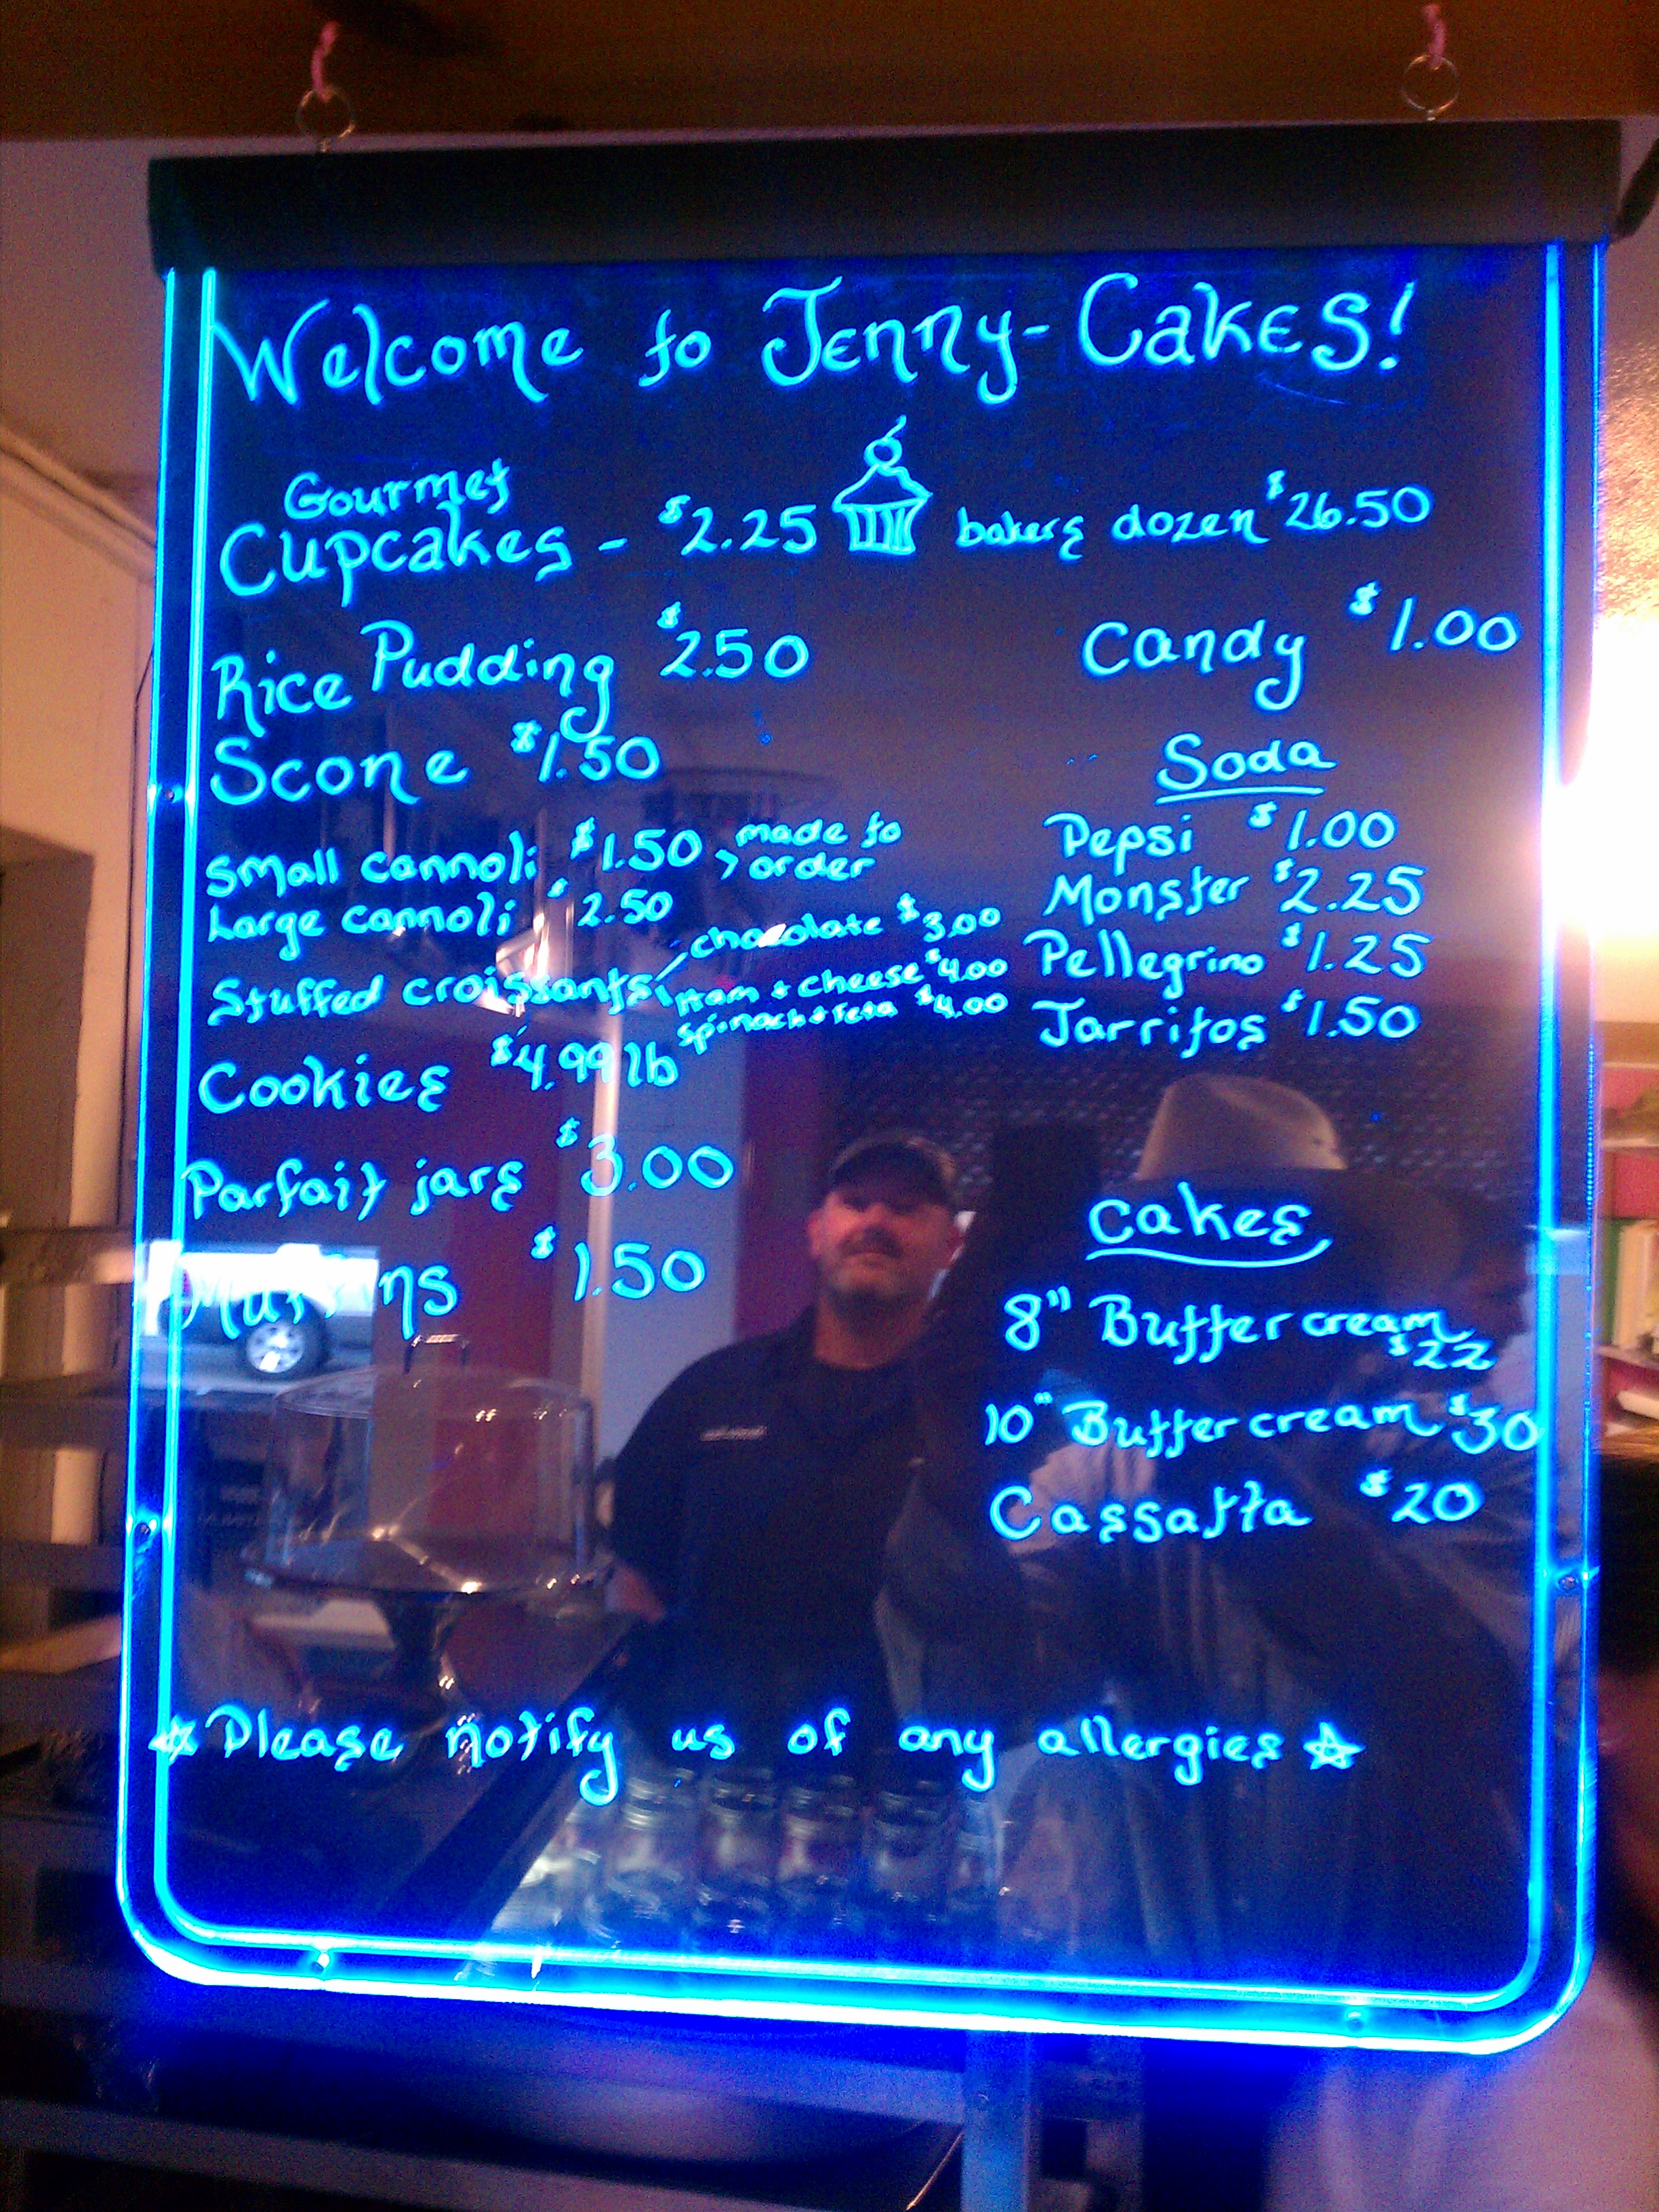 Welcome to Jenny-Cakes!
Gourmet
Cupcakes - $2.25 bakers dozen $26.50
Rice Pudding $2.50
Scone $1.50
small cannoli $1.50 > made to order
Large cannoli $2.50
Stuffed croissants chocolate $3.00
Ham + cheese $4.00
Spinach + Feta $4.00
Cookies $4.99 lb
Parfait jars $3.00
Muffins $1.50
Candy $1.00
Soda
Pepsi $1.00
Monster $2.25
Pellegrino $1.25
Jarritos $1.50
Cakes
8" Buttercream
$22
10" Buttercream $30
Cassatta $20
☆ Please notify us of any allergies ☆